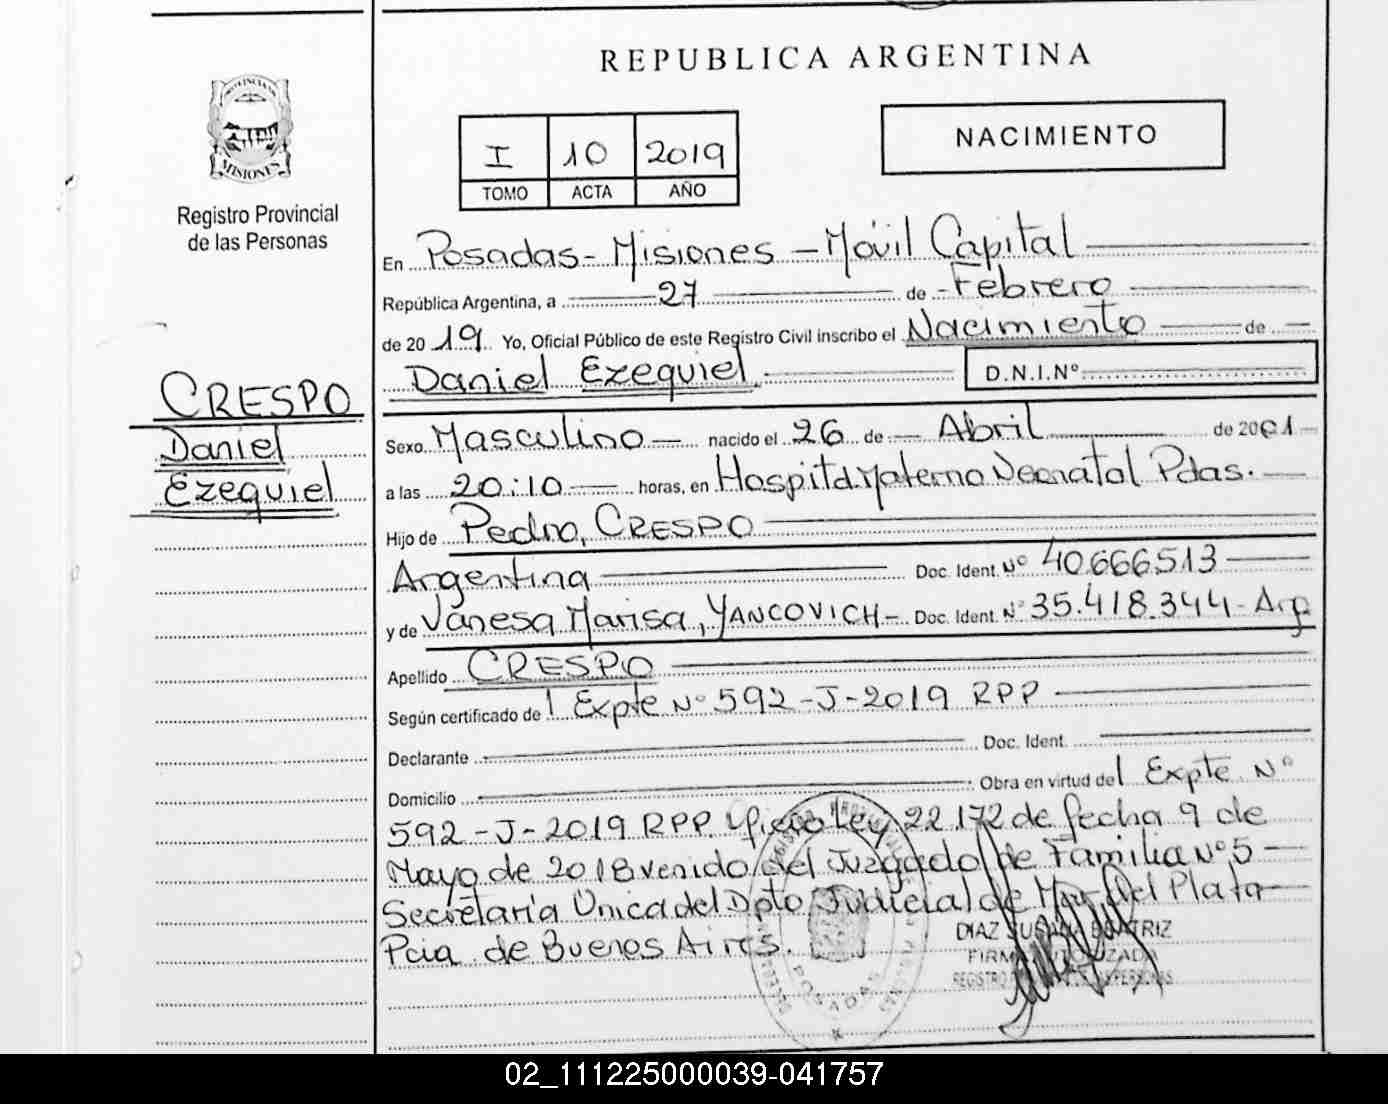 REPUBLICA ARGENTINA
PROVINCIA DE
MISIONES
Registro Provincial
de las Personas
I 10 2019
TOMO ACTA AÑO
NACIMIENTO
En Posadas - Misiones - Móvil Capital
República Argentina, a 27 de Febrero
de 2019 Yo, Oficial Público de este Registro Civil inscribo el Nacimiento de
Daniel Ezequiel D.N.I.Nº
CRESPO
Daniel
Ezequiel
Sexo Masculino nacido el 26 de Abril de 2001
a las 20:10 horas, en Hospital Materno Neonatal Pdas.
Hijo de Pedro, CRESPO
Argentina Doc. Ident. Nº 40666513
y de Vanesa Marisa, YANCOVICH - Doc. Ident. Nº 35.418.344 - Arg
Apellido CRESPO
Según certificado del Expte Nº 592-J-2019 RPP
Declarante Doc. Ident.
Domicilio Obra en virtud del Expte Nº
592-J-2019 RPP. Oficio Ley 22.172 de fecha 9 de
Mayo de 2018 venido del Juzgado de Familia Nº 5
Secretaría Única del Dpto Judicial de Mar del Plata
Pcia de Buenos Aires.
DIAZ SUSANA BEATRIZ
FIRMA AUTORIZADA
POSADAS
02_111225000039-041757